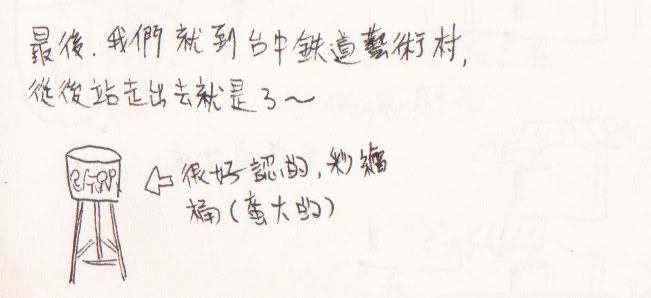 最後，我們就到台中鉄道藝術村，
從後站走出去就是了～
很好認的，彩繪
桶（蠻大的）